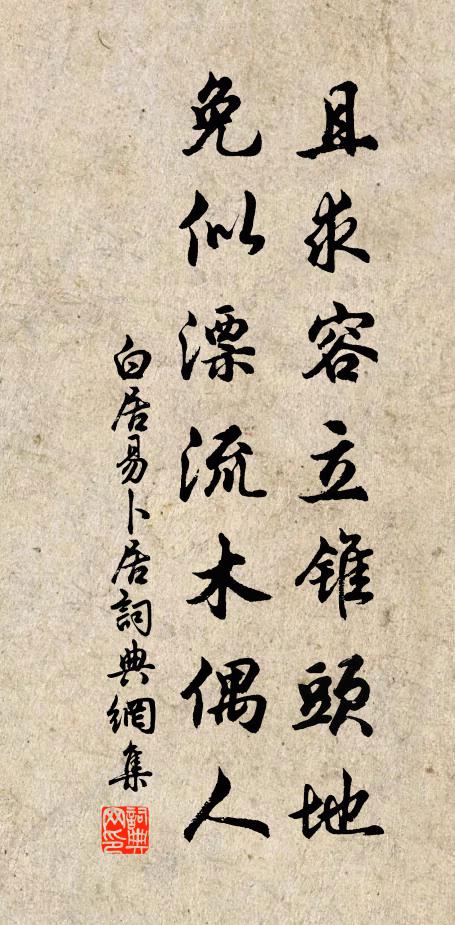 且求容立錐頭地
免似漂流木偶人
白居易卜居詞典網集
詞典网印